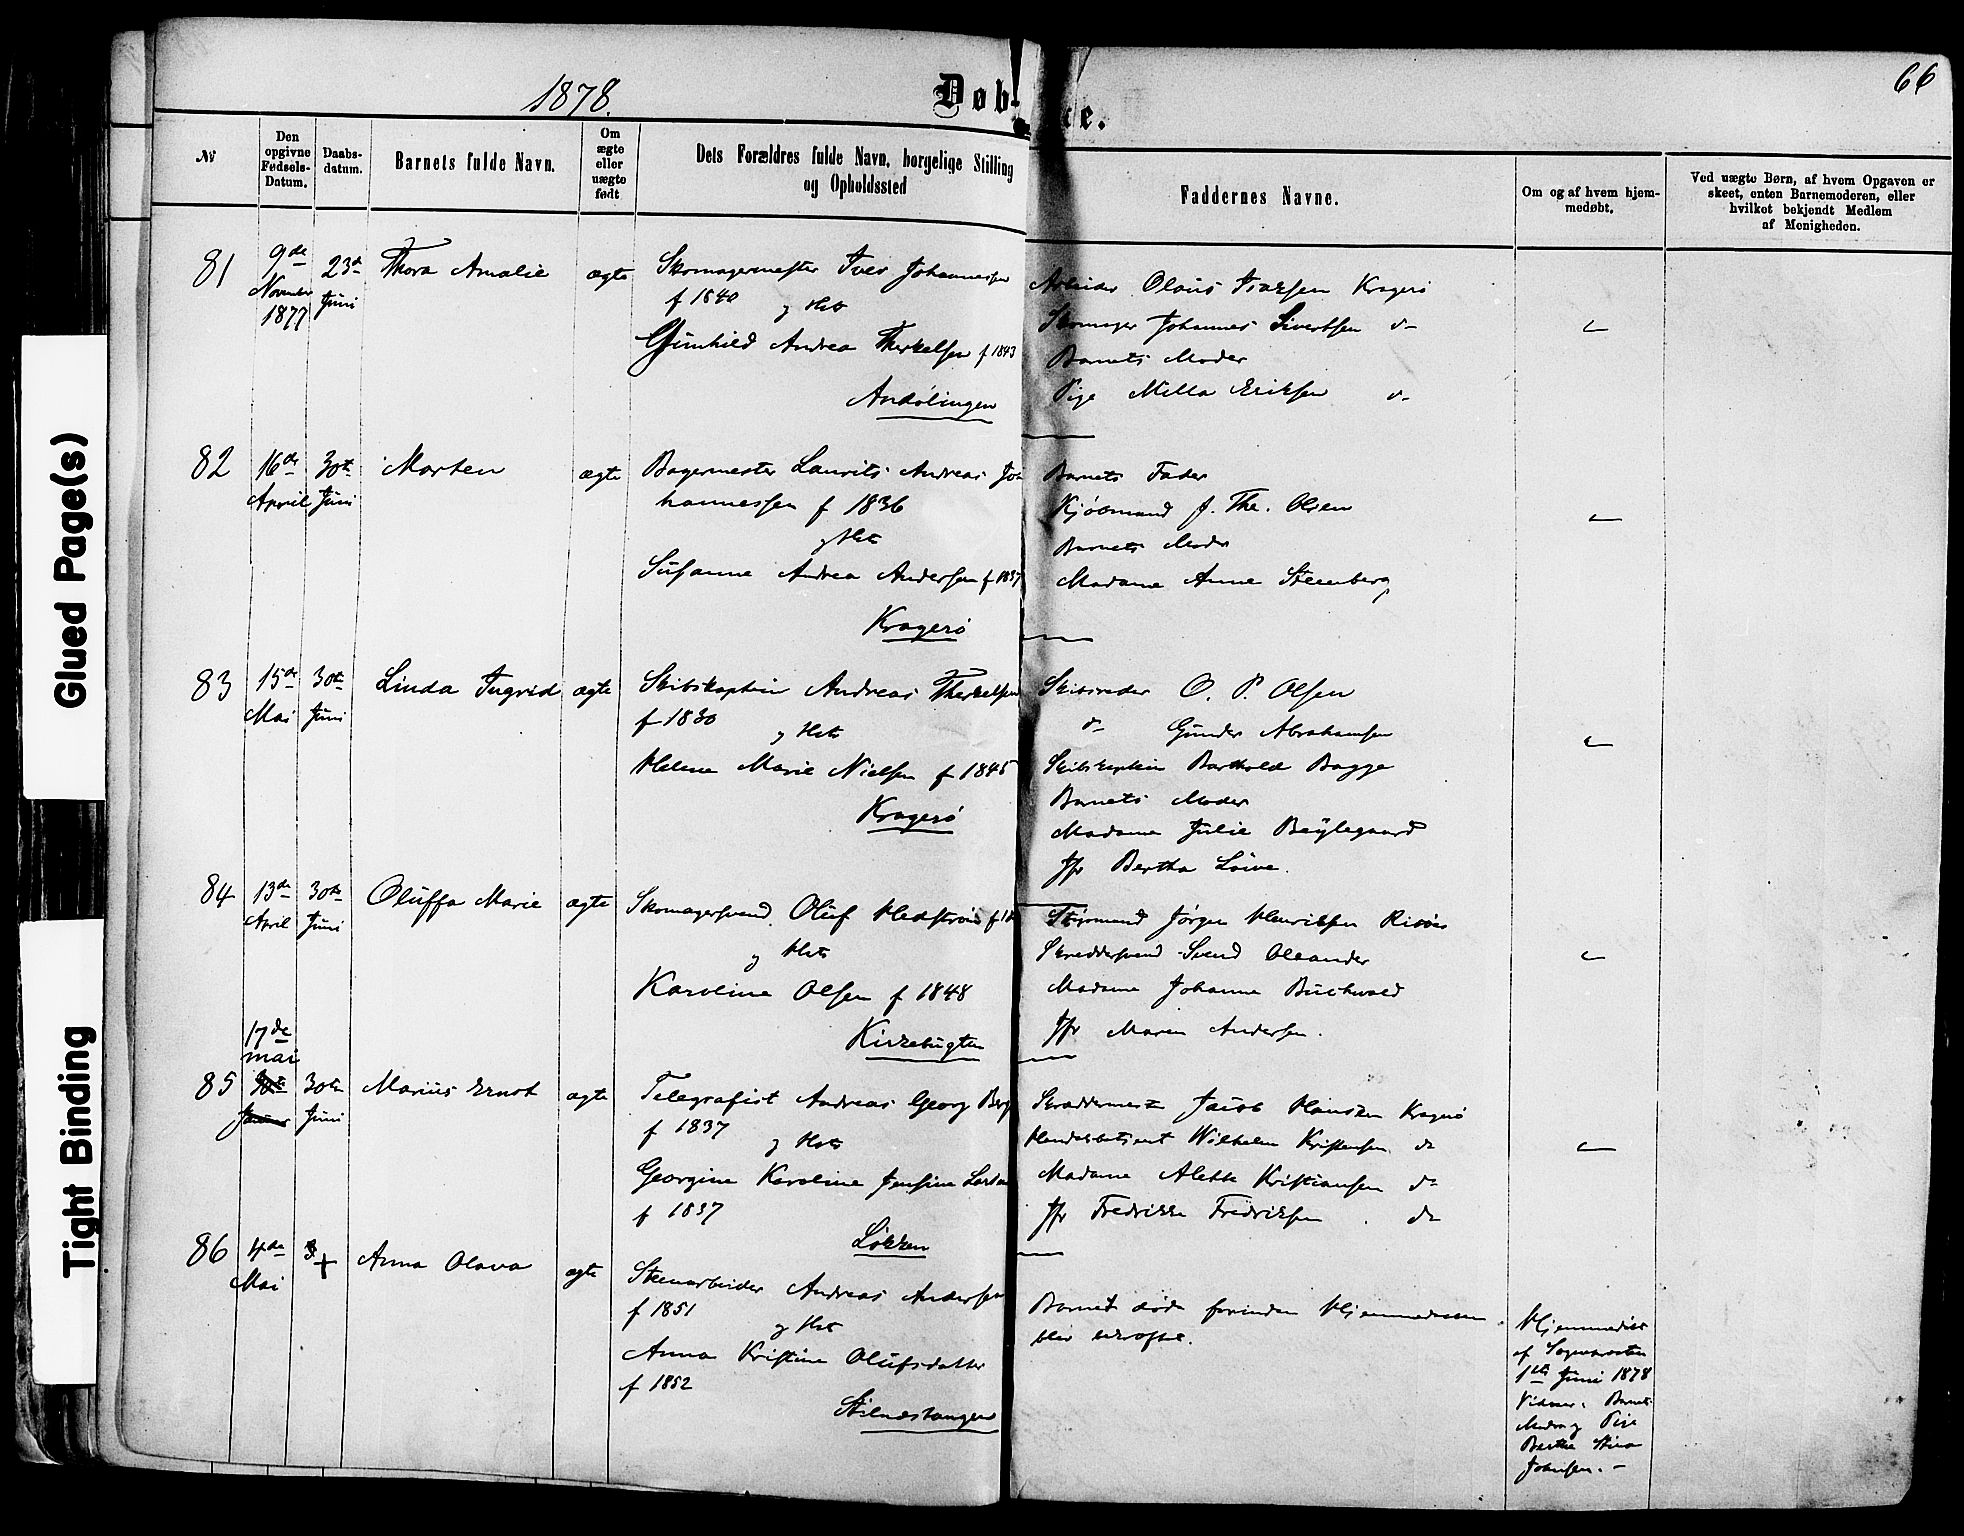 1878.
Døb- te.
66
Glued Page(s)
Tight Binding
№
Den opgivne Fødsels-Datum.
Daabs-datum.
Barnets fulde Navn.
Om ægte eller uægte født
Dets Forældres fulde Navn, borgelige Stilling og Opholdssted
Faddernes Navne.
Om og af hvem hjem-medøbt.
Ved uægte Børn, af hvem Opgaven er skeet, enten Barnemoderen, eller hvilket bekjendt Medlem af Menigheden.
81
9de November 1877
23de Juni
Thora Amalie
ægte
Skomagermester Iver Johannessen
f 1840 og Hst
Gunhild Andrea Therkelsen f 1843
Andølingen
Arbeider Olaus Isaksen Kragerø
Skomager Johannes Sivertsen do
Barnets Moder
Pige Milla Eriksen do
82
16de April
30te Juni
Morten
ægte
Bagermester Laurits Andreas Jo-
hannessen f 1836
og Hst
Susanne Andrea Andersen f 1837
Kragerø
Barnets Fader
Kjøbmand J. The. Olsen
Barnets Moder
Madame Anne Steenberg
83
15de Mai
30te Juni
Linda Ingrid
ægte
Skibskaptein Andreas Therkelsen
f 1830
og Hst
Helene Marie Nielsen f 1845
Kragerø
Skibsreder O. P. Olsen
do Gunder Abrahamsen
Skibskaptein Barthold Bagge
Barnets Moder
Madame Julie Bøylegaard
Jfr Bertha Løwe.
84
13de April
30te Juni
Oluffa Marie
ægte
Skomagersvend Oluf Hedstrøm
og Hst
Karoline Olsen f 1848
Kirkebugten
Styrmand Jørgen Henriksen Risør
Skreddersvend Svend Oleander
Madame Johanne Buchwald
Jfr Maren Andersen.
85
17de mai
30te Juni
Marius Ernst
ægte
Telegrafist Andreas Georg Berg
f 1837
og Hst
Georgine Karoline Jensine
f 1837
Løkken
Skreddermester Jacob Hansen Kragerø
Handelsbetjent Wilhelm Kristensen do
Madame Alette Kristiansen do
Jfr Fredrikke Fredriksen do
86
4de Mai
Anna Olava
ægte
Stenarbeider Andreas Andersen
f 1851
og Hst
Anna Kristine Olufsdatter
f 1852
Stilnæstangen
Barnet døde forinden Hjemmedaaben
blev bekræftet.
Hjemmedøbt
af Sognepresten
1ste Juni 1878
Vidner: Barnets
Moder og Pige
Johnsen. -